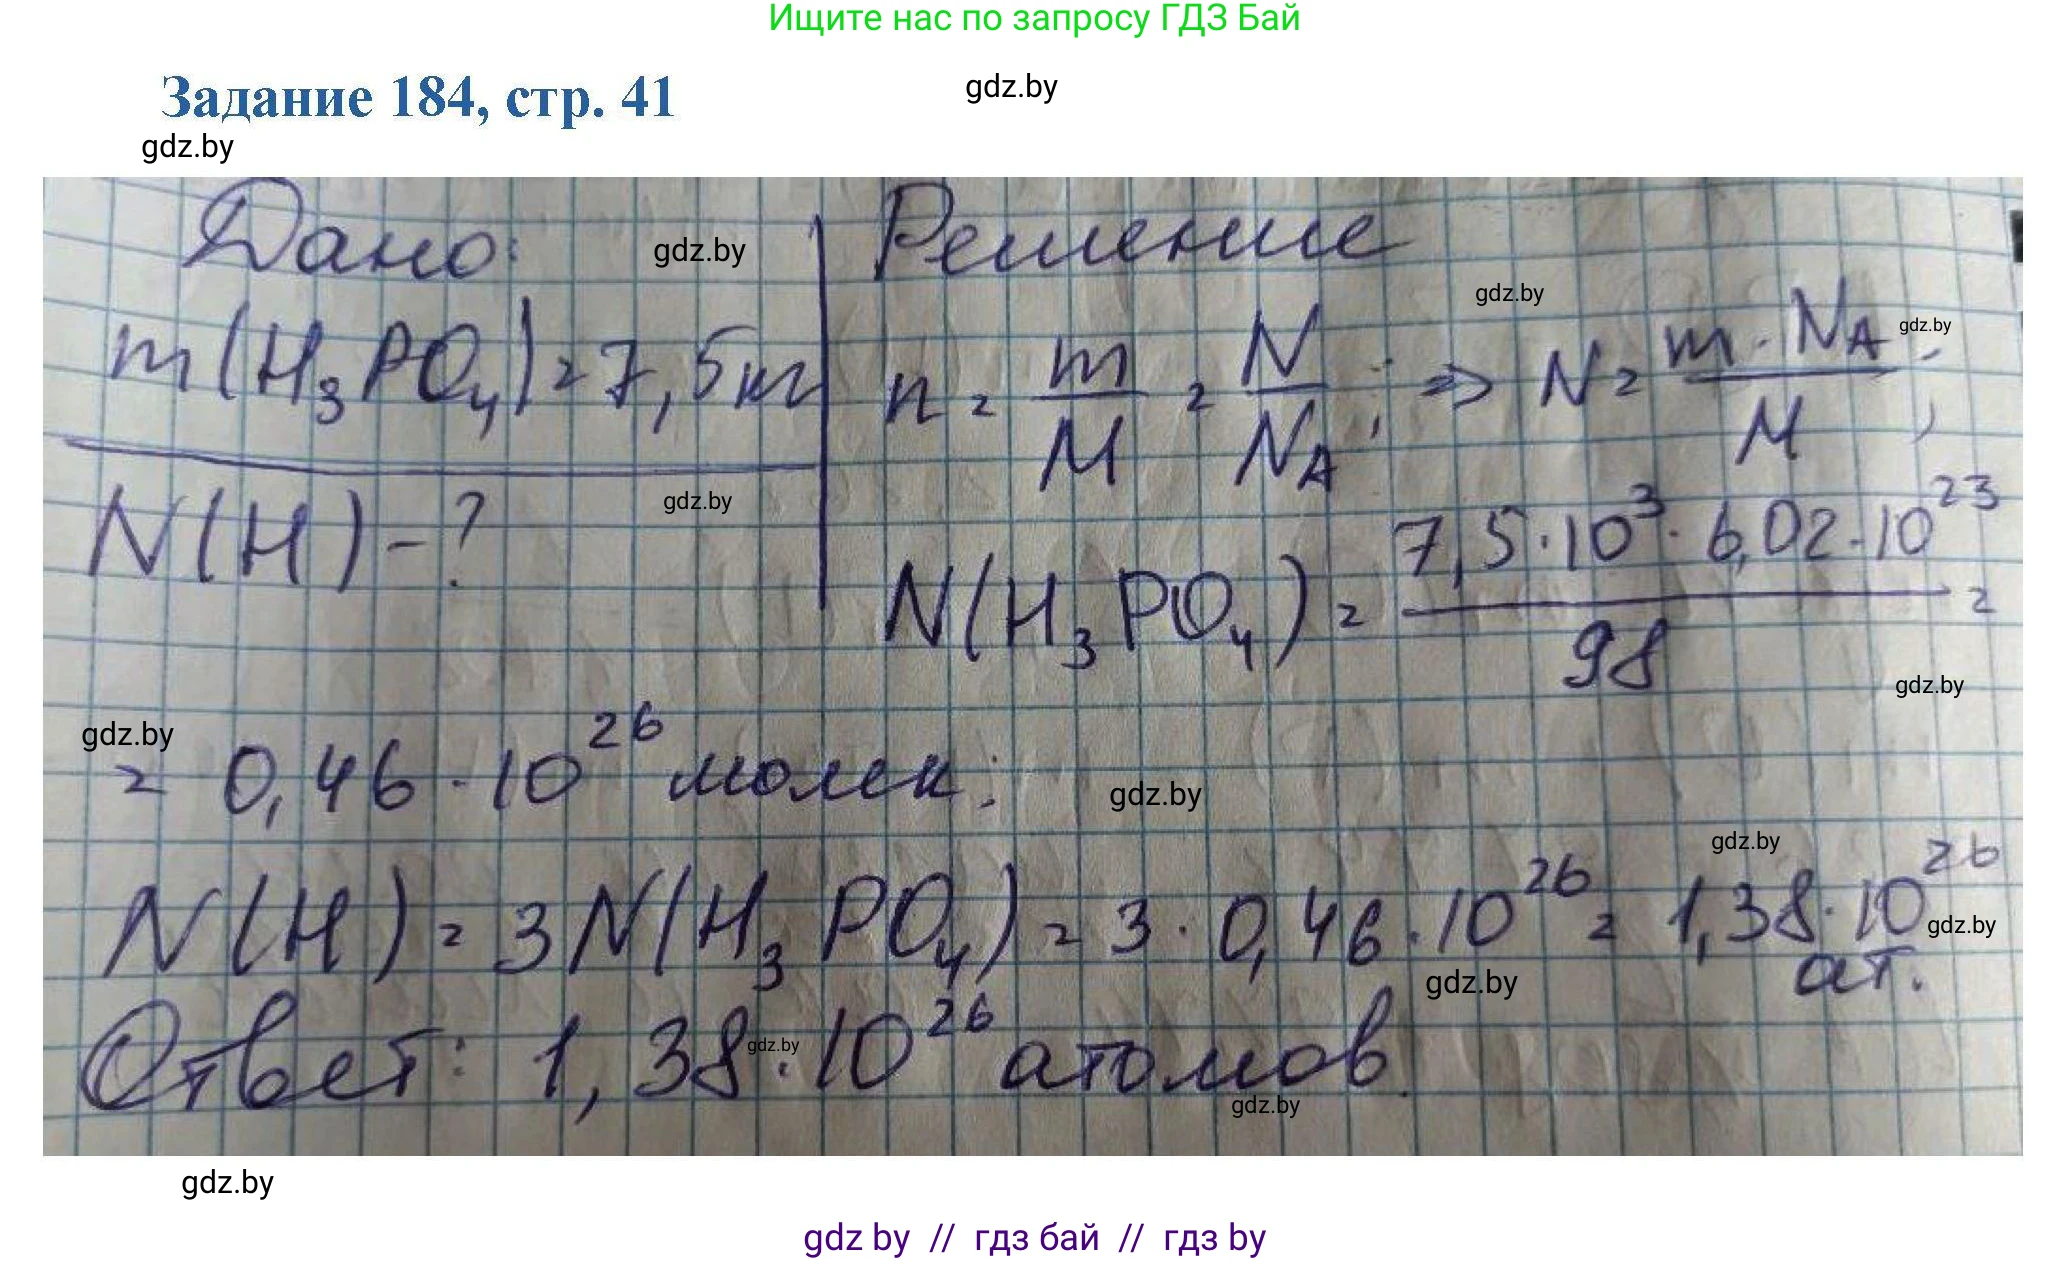 Ищите нас по запросу ГДЗ Бай
Задание 184, стр. 41
gdz.by
gdz.by
Дано:
gdz.by
Решение
m(H₃PO₄) = 7,5 кг
n = m/M = N/Nᴀ; ⇒ N = m·Nᴀ/M;
gdz.by
gdz.by
N(H) - ?
gdz.by
N(H₃PO₄) = 7,5·10³·6,02·10²³/98 =
gdz.by
gdz.by
= 0,46·10²⁶ молек;
gdz.by
gdz.by
N(H) = 3N(H₃PO₄) = 3·0,46·10²⁶ = 1,38·10²⁶ ат.
gdz.by
gdz.by
Ответ: 1,38·10²⁶ атомов.
gdz.by
gdz.by
gdz.by
gdz by // гдз бай // гдз by